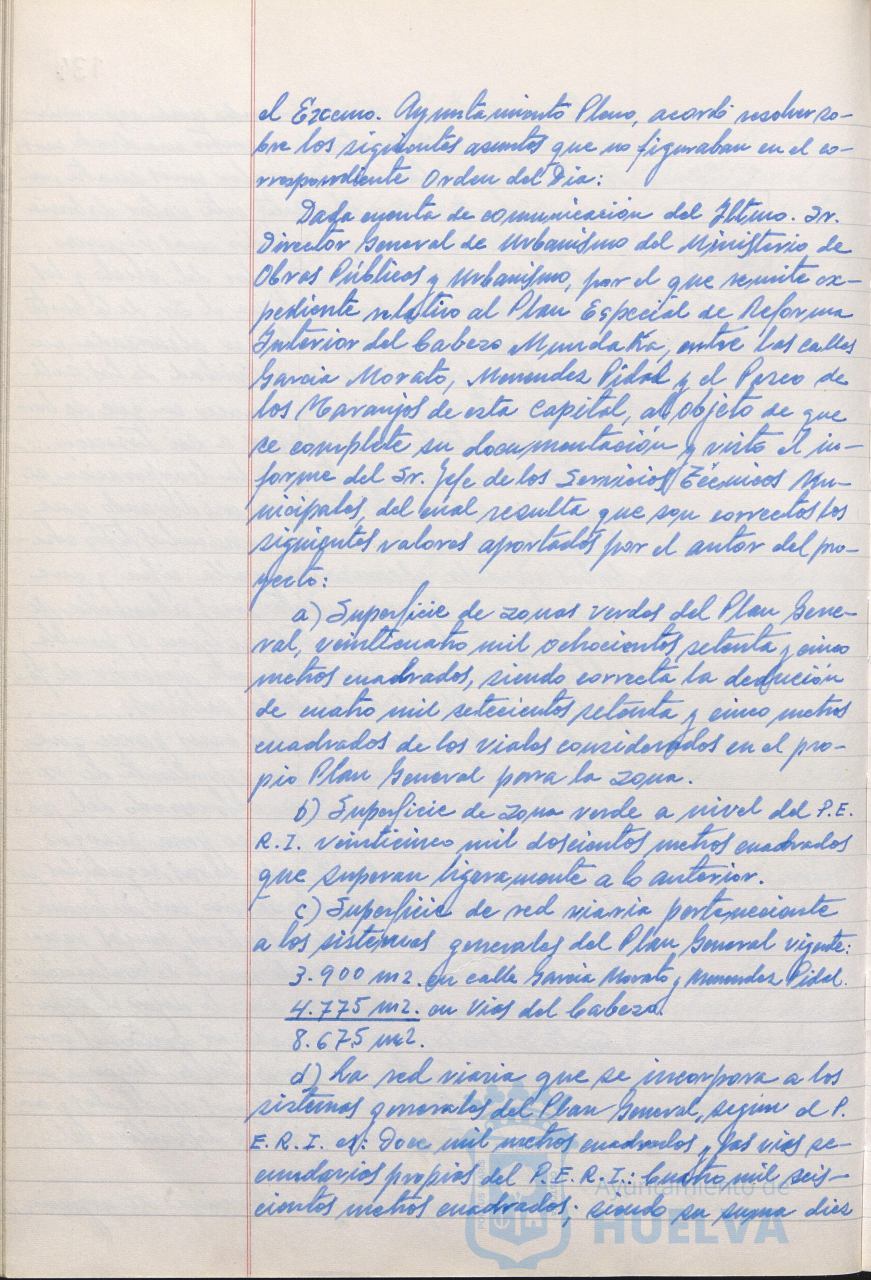 el Excmo. Ayuntamiento Pleno, acordó resolver so-
bre los siguientes asuntos que no figuraban en el co-
rrespondiente Orden del Dia:
Dada cuenta de comunicación del Iltmo. Sr.
Director General de Urbanismo del Ministerio de
Obras Públicas y Urbanismo, por el que remite ex-
pediente relativo al Plan Especial de Reforma
Interior del Cabezo Mundaka, entre las calles
Garcia Morato, Menendez Pidal y el Paseo de
los Naranjos de esta capital, al objeto de que
se complete su documentación y visto el in-
forme del Sr. Jefe de los Servicios Técnicos Mu-
nicipales, del cual resulta que son correctos los
siguientes valores aportados por el autor del pro-
yecto:
a) Superficie de zonas verdes del Plan Gene-
ral, veinticuatro mil ochocientos setenta y cinco
metros cuadrados, siendo correcta la deducción
de cuatro mil setecientos setenta y cinco metros
cuadrados de los viales considerados en el pro-
pio Plan General para la zona.
b) Superficie de zona verde a nivel del P.E.
R.I. veinticinco mil doscientos metros cuadrados
que superan ligeramente a lo anterior.
c) Superficie de red viaria perteneciente
a los sistemas generales del Plan General vigente:
3.900 m2. en calle Garcia Morato y Menendez Pidal.
4.775 m2. en Vias del Cabezo.
8.675 m2.
d) La red viaria que se incorpora a los
sistemas generales del Plan General, según el P.
E.R.I. es: Doce mil metros cuadrados y las vias se-
cundarias propias del P.E.R.I.: Cuatro mil seis-
cientos metros cuadrados; siendo su suma diez
Ayuntamiento de
HUELVA